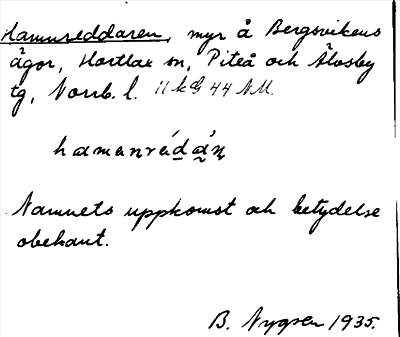 Hamnreddaren, myr å Bergsvikens
ägor, Hortlax sn, Piteå och Älvsby
tg, Norrb. l. 11 k d 44 NM.
hamanrédạ̀ṇ
Namnets uppkomst och betydelse
obekant.
B. Nygren 1935.